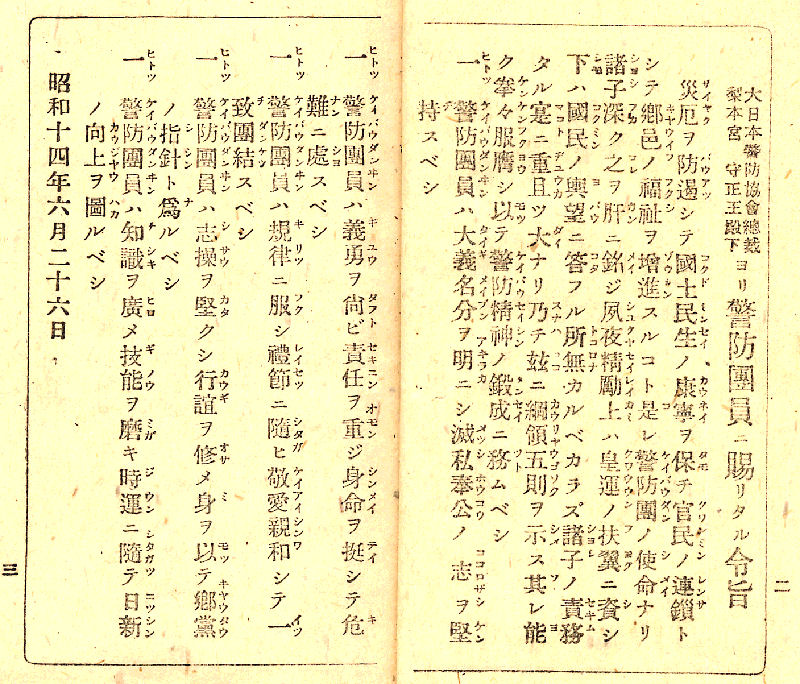 二
大日本警防協會總裁
梨本宮 守正王殿下 ヨリ警防團員ニ賜リタル令旨
災厄ヲ防遏シテ國土民生ノ康寧ヲ保チ官民ノ連鎖ト
シテ鄉邑ノ福祉ヲ增進スルコト是レ警防團ノ使命ナリ
諸子深ク之ヲ肝ニ銘ジ夙夜精勵上ハ皇運ノ扶翼ニ資シ
下ハ國民ノ輿望ニ答フル所無カルベカラズ諸子ノ責務
タル寔ニ重且ツ大ナリ乃チ玆ニ綱領五則ヲ示ス其レ能
ク拳々服膺シ以テ警防精神ノ鍛成ニ務ムベシ
一 警防團員ハ大義名分ヲ明ニシ滅私奉公ノ志ヲ堅
持スベシ
一 警防團員ハ義勇ヲ尙ビ責任ヲ重ジ身命ヲ挺シテ危
難ニ處スベシ
一 警防團員ハ規律ニ服シ禮節ニ隨ヒ敬愛親和シテ一
致團結スベシ
一 警防團員ハ志操ヲ堅クシ行誼ヲ修メ身ヲ以テ鄉黨
ノ指針ト爲ルベシ
一 警防團員ハ知識ヲ廣メ技能ヲ磨キ時運ニ隨テ日新
ノ向上ヲ圖ルベシ
昭和十四年六月二十六日
三